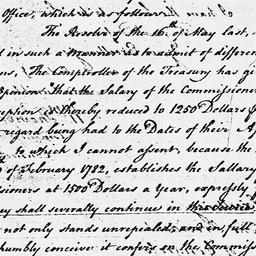 Office, which is as follows
The Resolve of the 16th of May last,
in such a manner as to admit of differen
ns, The Comptroller of the Treasury has gi
Opinion That the Salary of the Commissione
eption is thereby reduced to 1250 Dollars
regard being had to the Dates of their Ap
to which I cannot assent, because the
of February 1782, establishes the Sallary
sioners at 1500 Dollars a Year, expressly
ey shall severally continue in this service
not only stands unrepialed, and in full
humbly conceive it confers on the Commiss